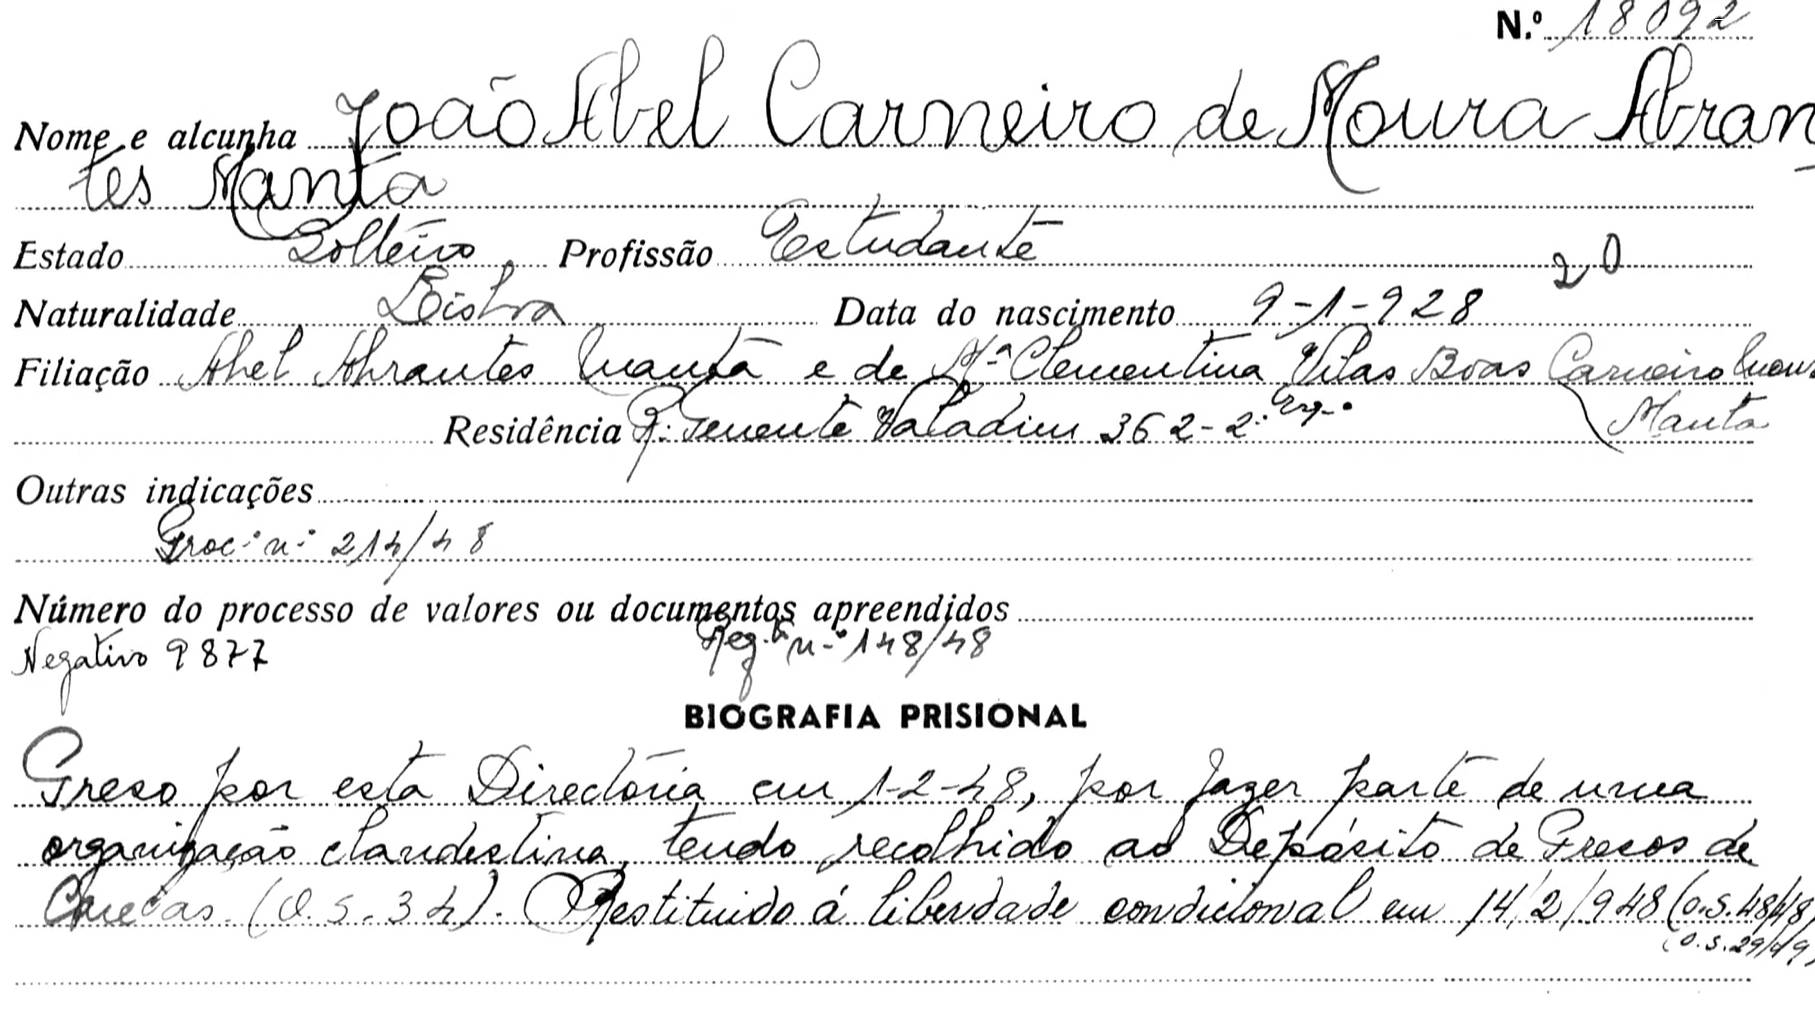 N.º 18092
Nome e alcunha João Abel Carneiro de Moura Abran
tes Manta
Estado Solteiro Profissão Estudante 20
Naturalidade Lisboa Data do nascimento 9-1-928
Filiação Abel Abrantes Manta e de Mª Clementina Vilas Boas Carneiro Moura
Manta
Residência R. Tenente Valadim 362-2.º Esq.º
Outras indicações
Proc.º n.º 214/48
Número do processo de valores ou documentos apreendidos
Negativo 9877 Reg.to n.º 148/48
BIOGRAFIA PRISIONAL
Preso por esta Directória em 1-2-48, por fazer parte de uma
organização clandestina, tendo recolhido ao Depósito de Presos de
Caxias (O.S. 34). Restituido á liberdade condicional em 14/2/948 (O.S. 48/48)
(O.S. 29/49)